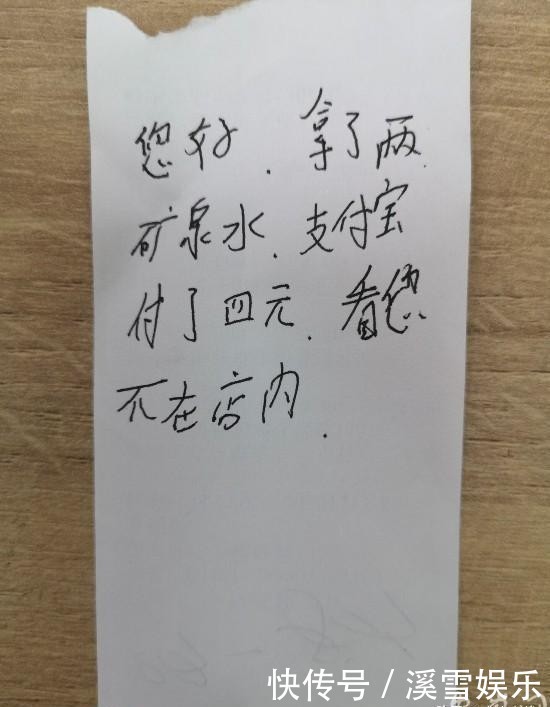 您好.拿了两
矿泉水.支付宝
付了四元.看您
不在店内.
快传号/溪雪娱乐